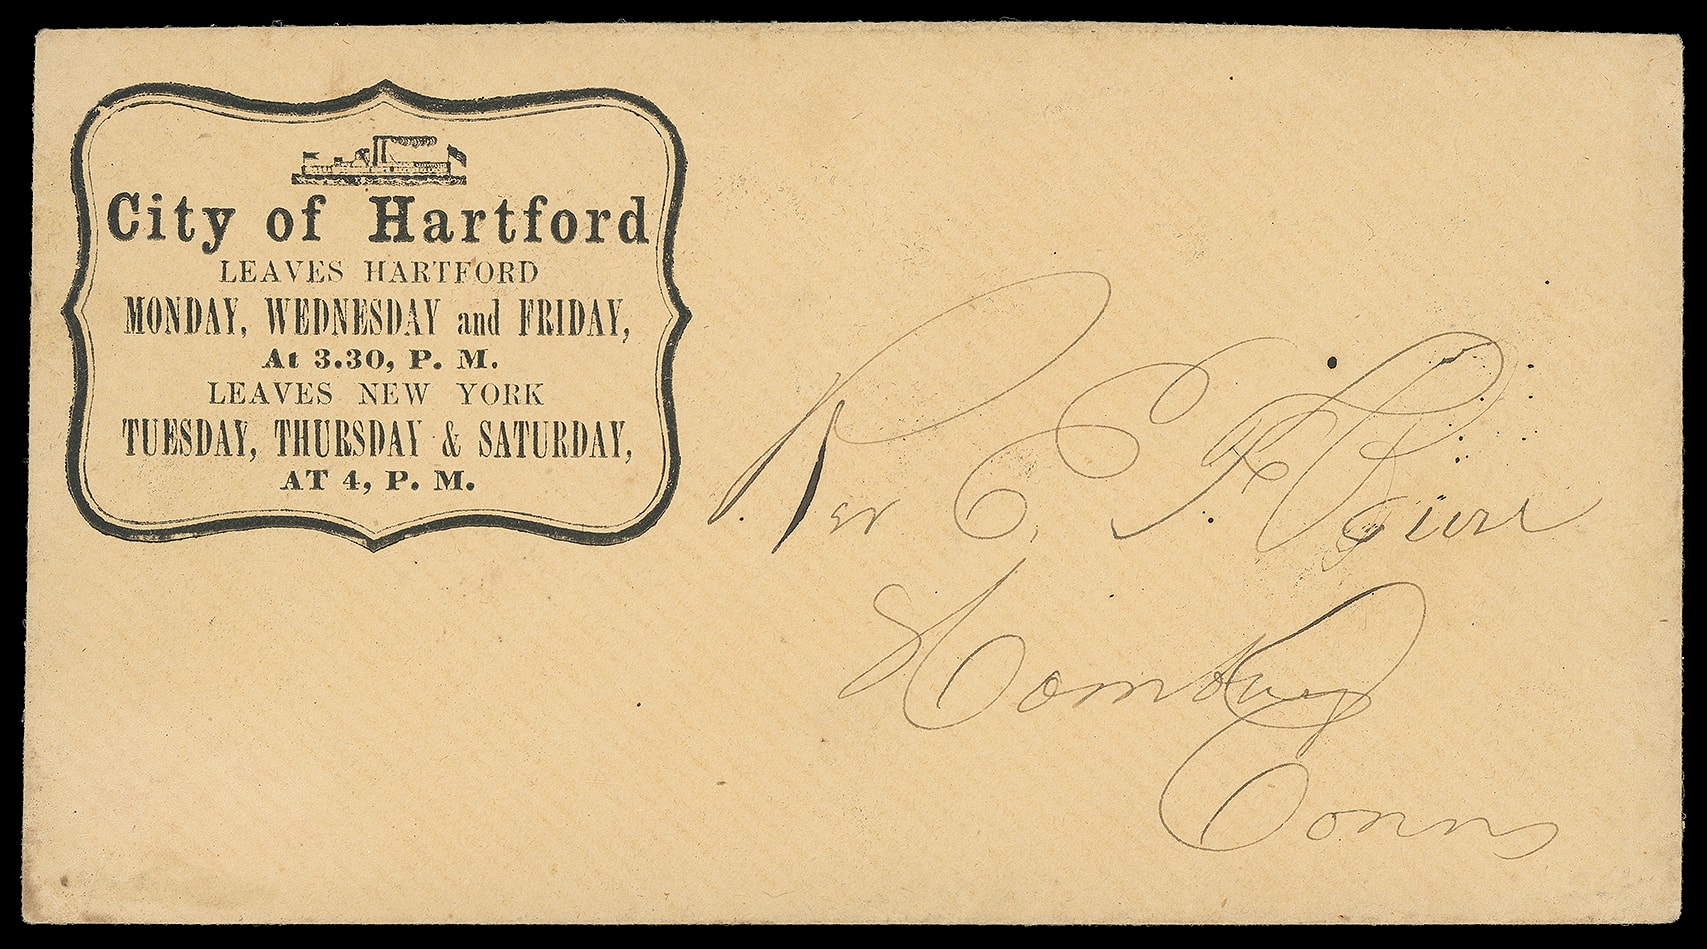 City of Hartford
LEAVES HARTFORD
MONDAY, WEDNESDAY and FRIDAY,
At 3.30, P. M.
LEAVES NEW YORK
TUESDAY, THURSDAY & SATURDAY,
AT 4, P. M.
Rev E. F.
Hamburg
Conn